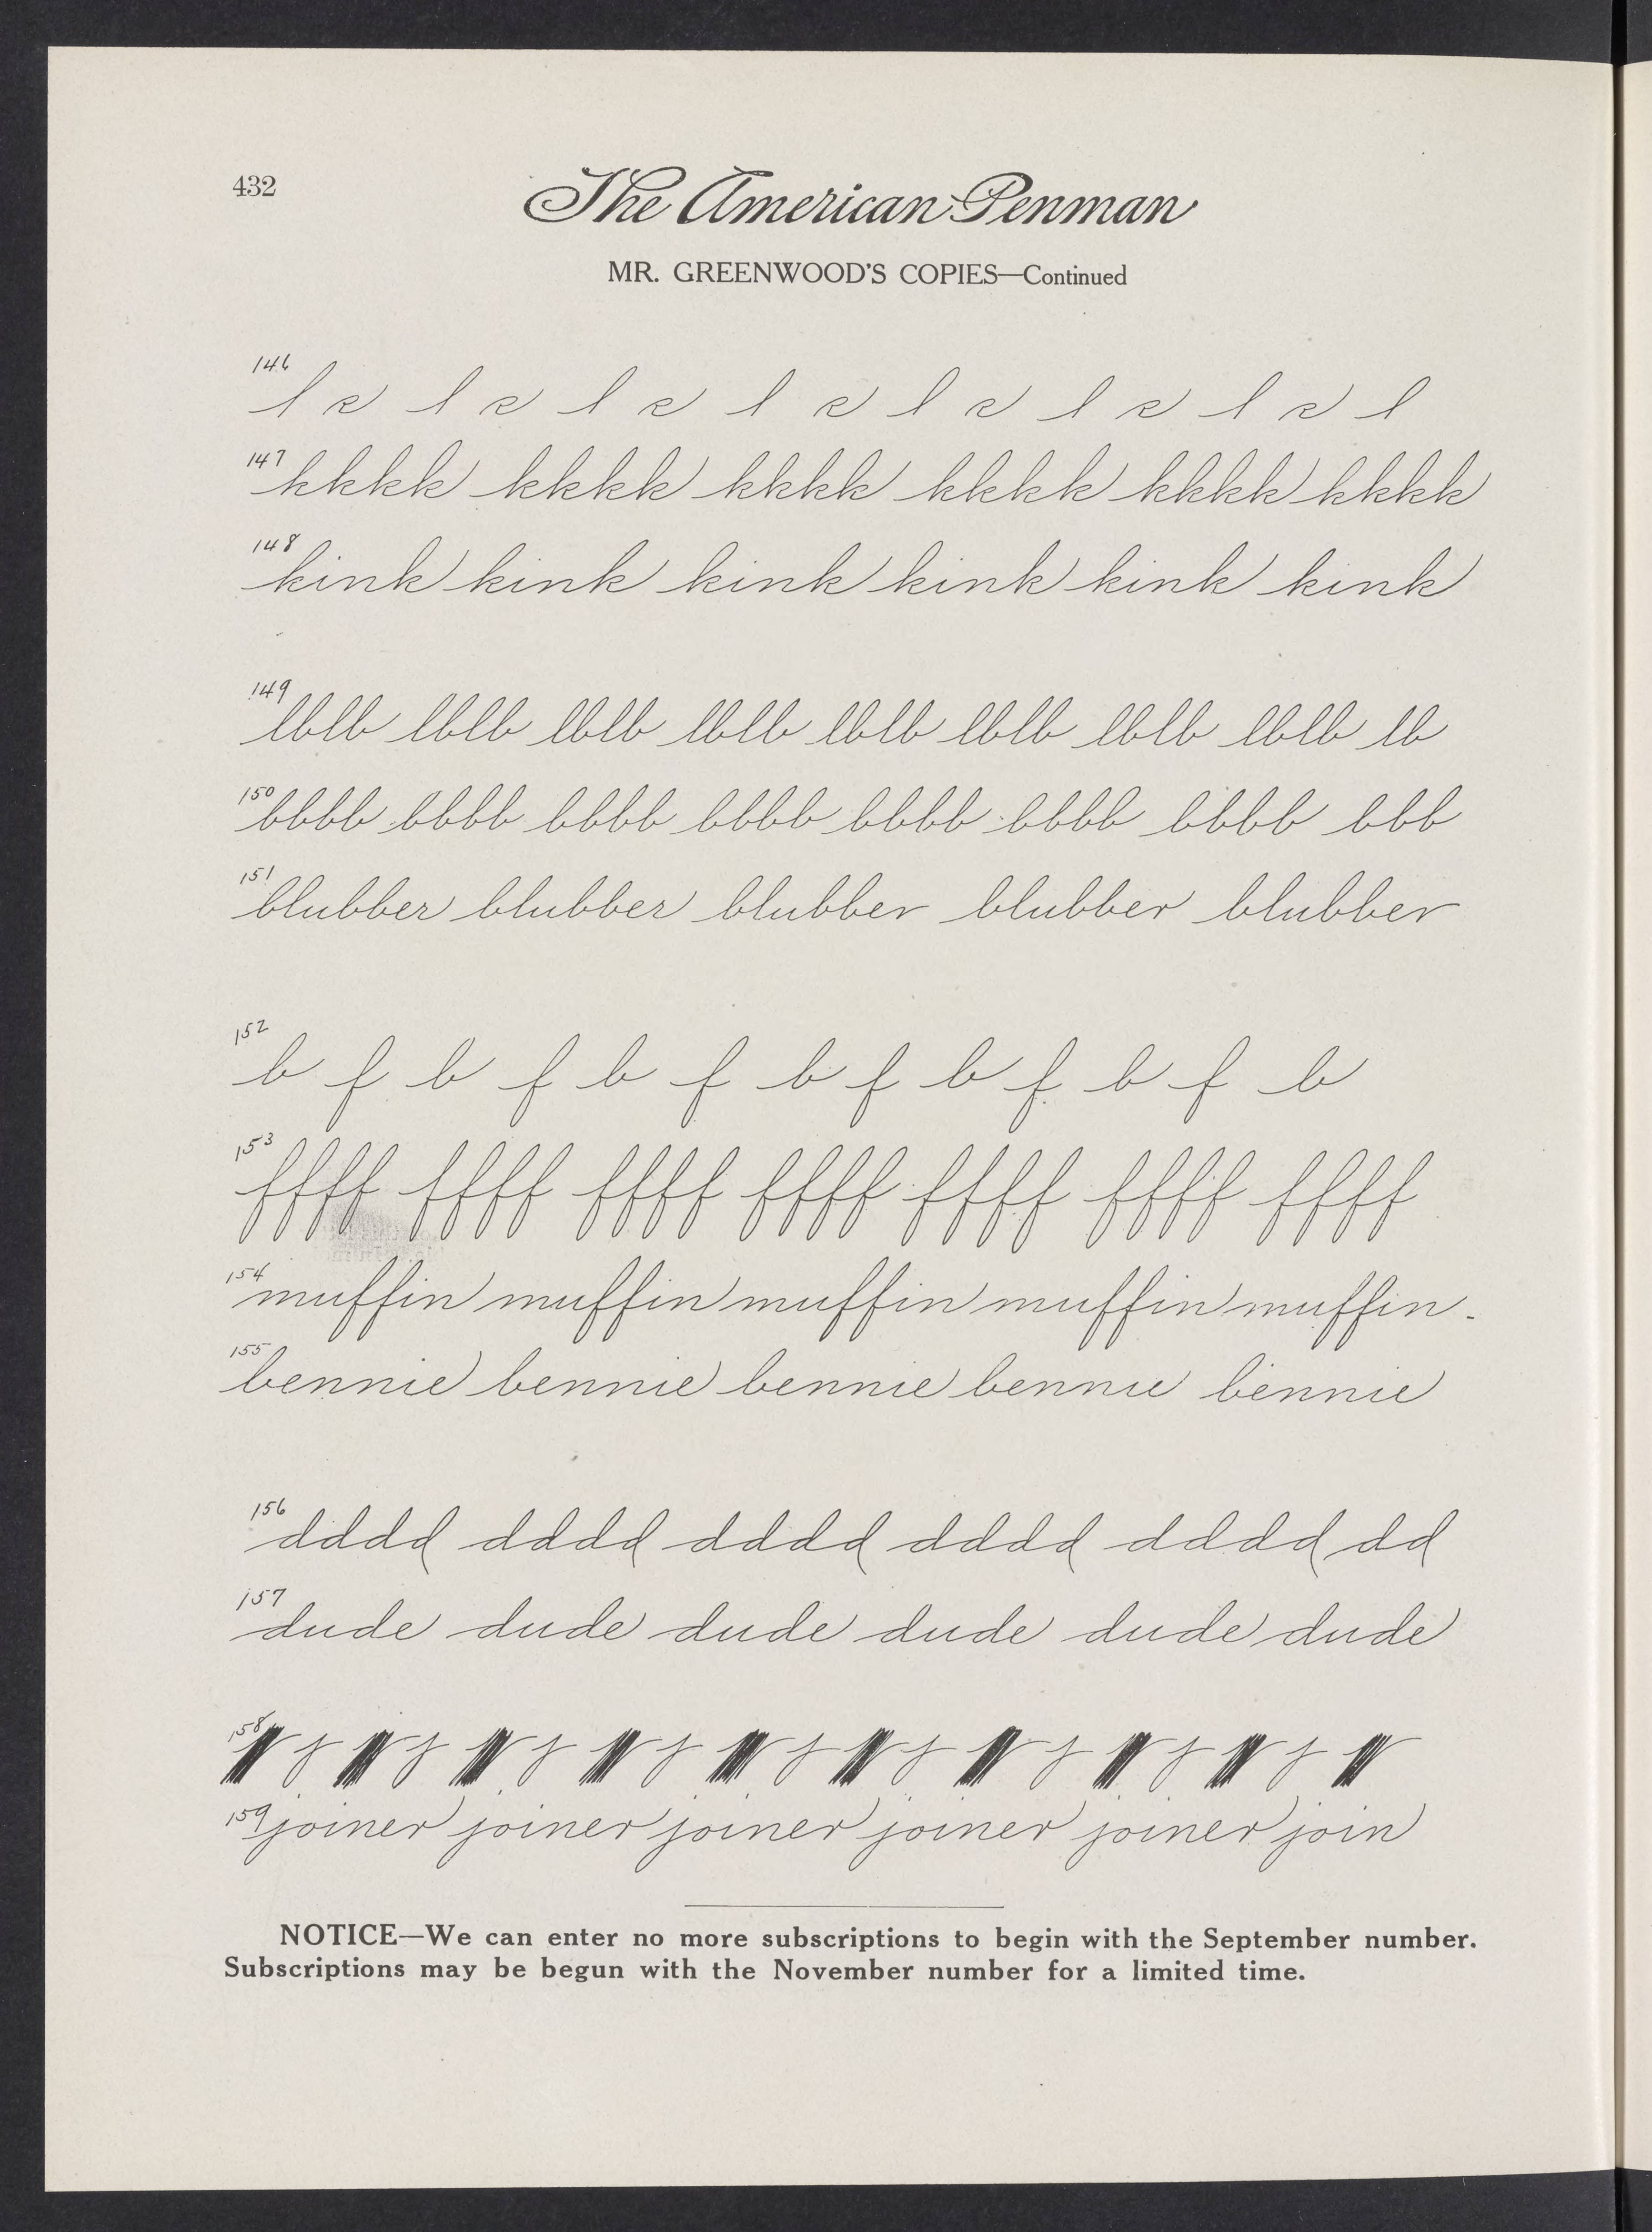 432
The American Penman
MR. GREENWOOD'S COPIES—Continued
146 l l l l l l l l
147 kkkk kkkk kkkk kkkk kkkk kkkk
148 kink kink kink kink kink kink
149 lblb lblb lblb lblb lblb lblb lblb lblb lb
150 bbbb bbbb bbbb bbbb bbbb bbbb bbbb bbb
151 blubber blubber blubber blubber blubber
152 b f b f b f b f b f b f b
153 ffff ffff ffff ffff ffff ffff ffff
154 muffin muffin muffin muffin muffin
155 bennie bennie bennie bennie bennie
156 dddd dddd dddd dddd dddd dd
157 dude dude dude dude dude dude
158 j j j j j j j j j
159 joiner joiner joiner joiner joiner join
NOTICE—We can enter no more subscriptions to begin with the September number.
Subscriptions may be begun with the November number for a limited time.